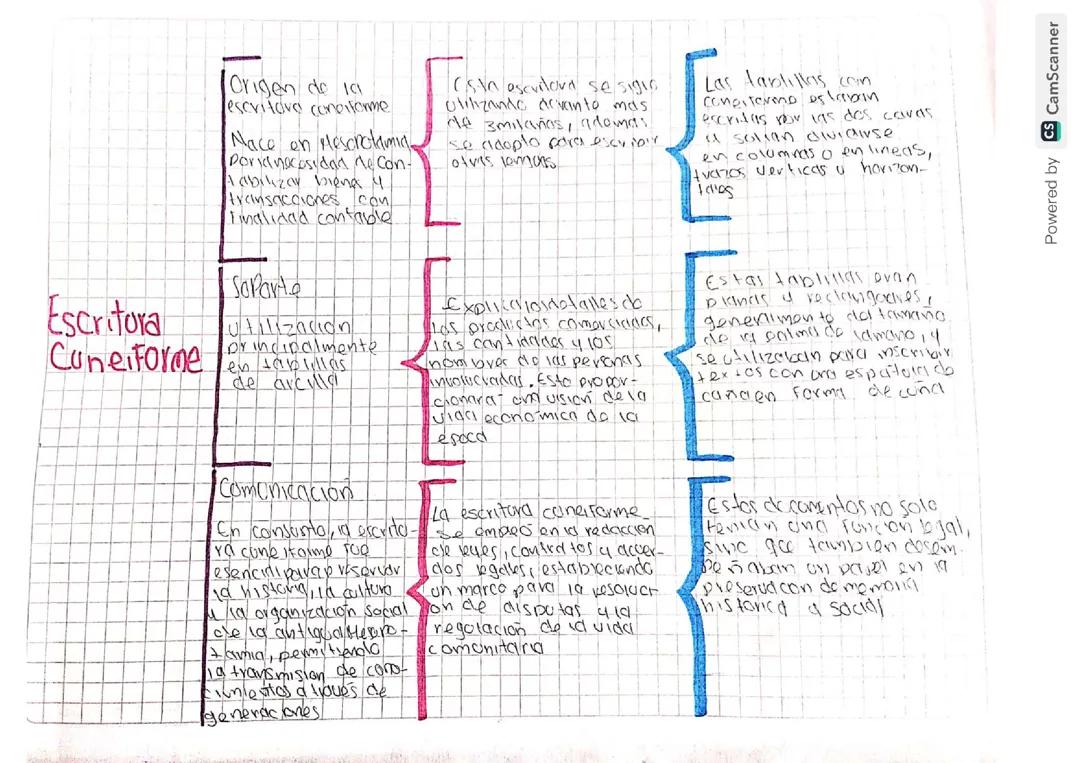 Escritura
Cuneiforme
Origen de la
escritura cuneiforme
Nace en Mesopotamia
por la necesidad de con-
tabilizar bienes y
transacciones, con
finalidad contable
Esta escritura se siguio
utilizando durante mas
de 3 mil años, ademas
se adopto para escribir
otras lenguas
Las tablillas con
cuneiforme estaban
escritas por las dos caras
y solian dividirse
en columnas o en lineas,
trazos verticas u horizon-
tales
Soporte
Utilizacion
principalmente
en tablillas
de arcilla
los productos comerciales,
las cantidades y los
nombres de las personas
involucradas. Esto propor-
cionara una vision de la
vida económica de la
epoca
Estas tablillas eran
planas y rectangulares,
generalmente del tamaño
de la palma de la mano, y
se utilizaban para inscribir
textos con una espatula de
caña en forma de cuña
Comunicacion
En conjunto, la escritu-
ra cuneiforme fue
esencial para preservar
la historia, la cultura
y la organización social
de la antigua Mesopo-
tamia, permitiendo
la transmision de cono-
cimientos a través de
generaciones
La escritura cuneiforme
se empleó en la redaccion
de leyes, contratos y acuer-
dos legales, estableciendo
un marco para la resoluci-
on de disputas y la
regulación de la vida
comunitaria
Estos documentos no solo
tenian una funcion legal,
sino que tambien desem-
peñaban un papel en la
preservacon de memoria
historica y social
Powered by CS CamScanner